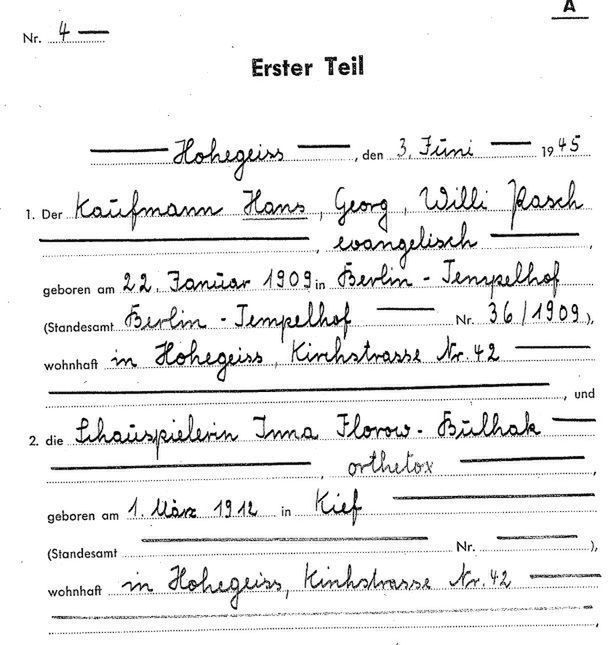 A
Nr. 4
Erster Teil
Hohegeiss, den 3. Juni 1945
1. Der Kaufmann Hans, Georg, Willi Rasch
, evangelisch,
geboren am 22. Januar 1909 in Berlin - Tempelhof
(Standesamt Berlin - Tempelhof Nr. 36/1909),
wohnhaft in Hohegeiss, Kirchstrasse Nr. 42
, und
2. die Schauspielerin Inna Florow - Bulhak
, orthetox,
geboren am 1. März 1912 in Kief
(Standesamt Nr. ),
wohnhaft in Hohegeiss, Kirchstrasse Nr. 42
,